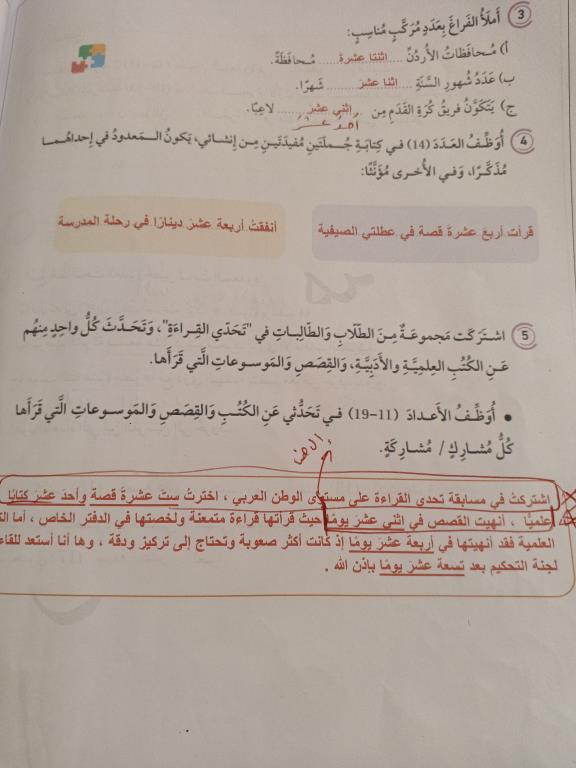 3 أَملَأُ الفَراغَ بِعَدَدٍ مُرَكَّبٍ مُناسِبٍ:
أ) مُحافَظاتُ الأُردُنِّ ...اثنتا عشرة... مُحافَظَةً.
ب) عَدَدُ شُهورِ السَّنَةِ ...اثنا عشرَ... شَهرًا.
ج) يَتَكَوَّنُ فَريقُ كُرَةِ القَدَمِ مِن ...اثني عشرَ... لاعِبًا.
أحدَ عشرَ
4 أُوَظِّفُ العَدَدَ (14) في كِتابَةِ جُملَتَينِ مُفيدَتَينِ مِن إِنشائي، يَكونُ المَعدودُ في إِحداهُما
مُذَكَّرًا، وَفي الأُخرى مُؤَنَّثًا:
قرأت أربعَ عشرةَ قصة في عطلتي الصيفية
أنفقتُ أربعة عشرَ دينارًا في رحلة المدرسة
5 اشتَرَكَت مَجموعَةٌ مِنَ الطُّلّابِ وَالطّالِباتِ في "تَحَدّي القِراءَةِ"، وَتَحَدَّثَ كُلُّ واحِدٍ مِنهُم
عَنِ الكُتُبِ العِلمِيَّةِ وَالأَدَبِيَّةِ، وَالقِصَصِ وَالمَوسوعاتِ الَّتي قَرَأَها.
• أُوَظِّفُ الأَعدادَ (11-19) في تَحَدُّثي عَنِ الكُتُبِ وَالقِصَصِ وَالمَوسوعاتِ الَّتي قَرَأَها
كُلُّ مُشارِكٍ / مُشارِكَةٍ.
اشتركتُ في مسابقة تحدى القراءة على مستوى الوطن العربي ، اخترتُ ستَ عشرةَ قصة وأحدَ عشرَ كتابًا
علميًا ، أنهيت القصص في اثني عشرَ يومًا حيث قرأتها قراءة متمعنة ولخصتها في الدفتر الخاص ، أما
العلمية فقد أنهيتها في أربعة عشرَ يومًا إذ كانت أكثر صعوبة وتحتاج إلى تركيز ودقة ، وها أنا أستعد
لجنة التحكيم بعد تسعة عشرَ يومًا بإذن الله .